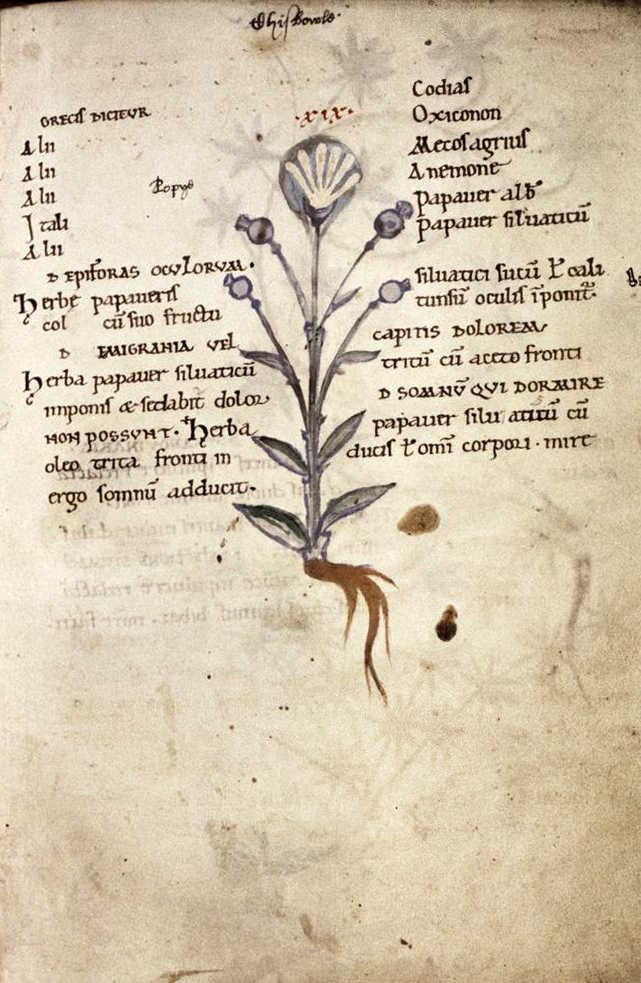 xix
GRECIS DICITUR Codias
Alii Oxiconon
Alii Mecos agrius
Alii Anemone
Itali papauer alb̄
Alii papauer siluaticū
Popye
D EPIFORAS OCULORUM.
Herbe papaueris siluatici sucū ł cali
col cū suo fructu tunsū oculis īponit᷑.
D EMIGRANIA VEL CAPITIS DOLOREM
Herba papauer siluaticū tritū cū aceto fronti
imponis & sedabit dolor
D SOMNŪ QUI DORMIRE
NON POSSUNT. Herba papauer siluaticū cū
oleo trita fronti in ducis ł omī corpori. mire
ergo somnū adducit.